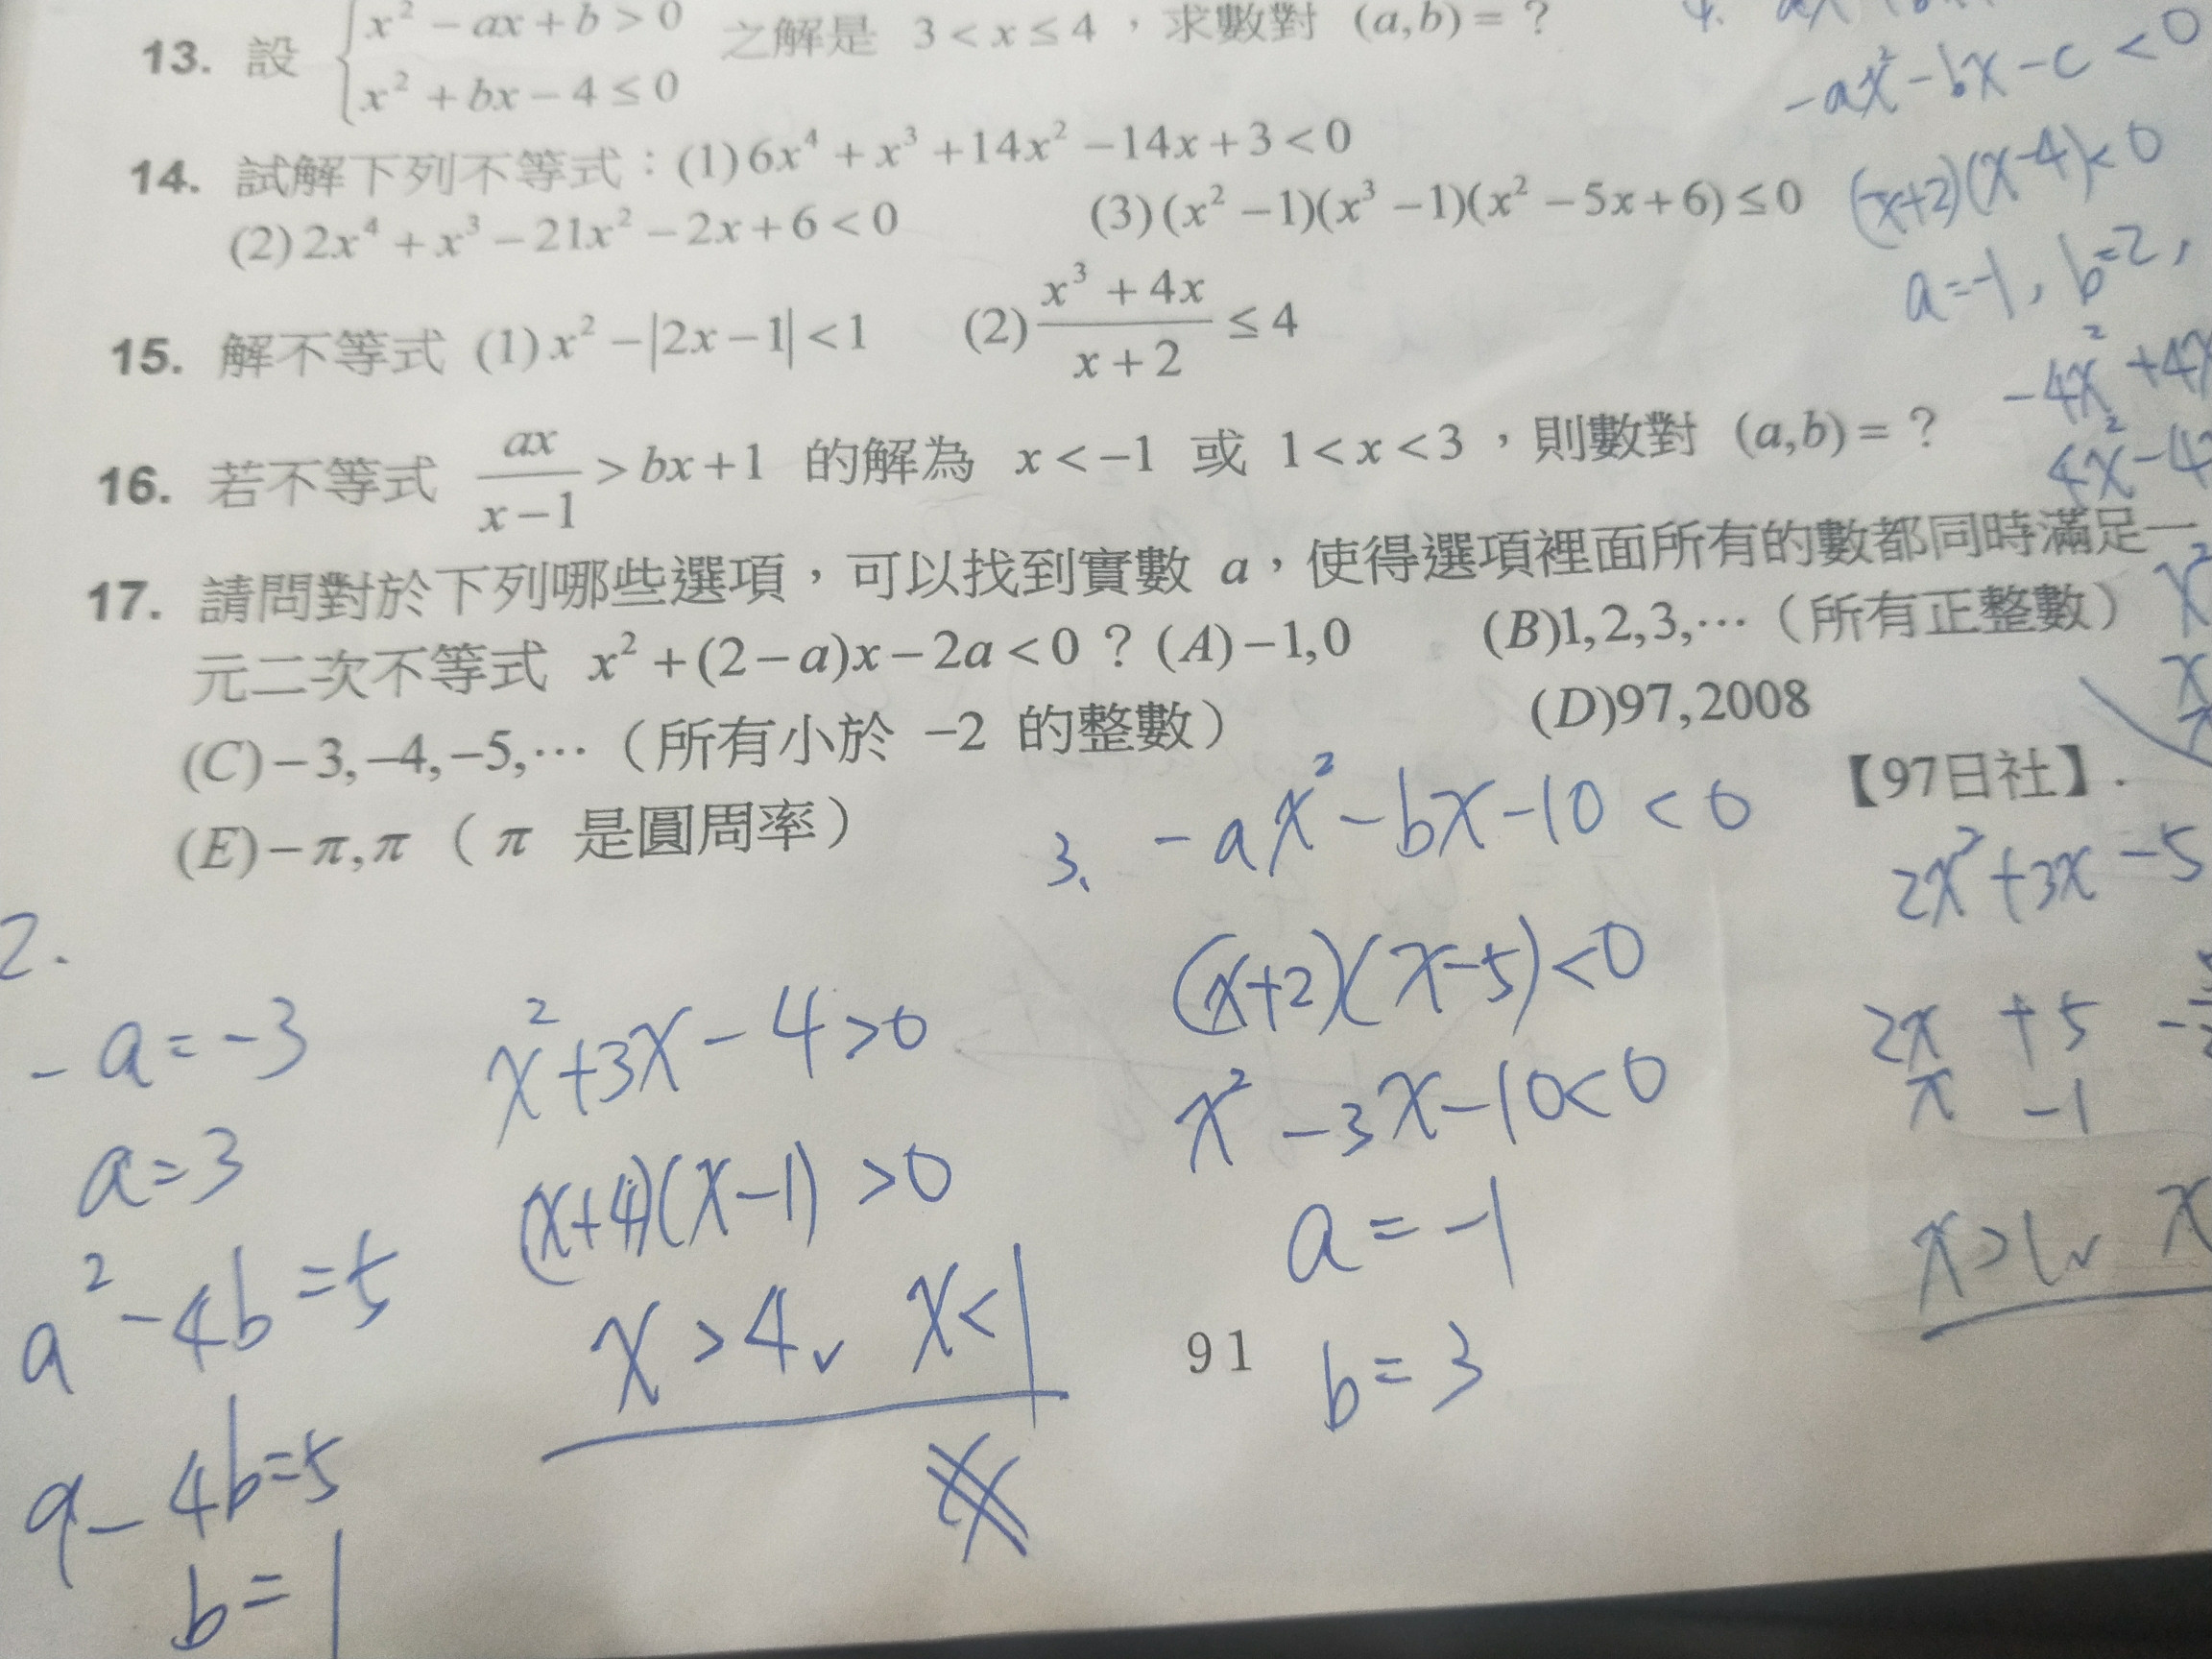 13. 設 { x² − ax + b > 0 之解是 3 < x ≤ 4，求數對 (a,b) = ?
x² + bx − 4 ≤ 0
14. 試解下列不等式：(1) 6x⁴ + x³ + 14x² − 14x + 3 < 0
(2) 2x⁴ + x³ − 21x² − 2x + 6 < 0 (3) (x² − 1)(x³ − 1)(x² − 5x + 6) ≤ 0
15. 解不等式 (1) x² − |2x − 1| < 1 (2) (x³ + 4x)/(x + 2) ≤ 4
16. 若不等式 ax/(x − 1) > bx + 1 的解為 x < −1 或 1 < x < 3，則數對 (a,b) = ?
17. 請問對於下列哪些選項，可以找到實數 a，使得選項裡面所有的數都同時滿足一
元二次不等式 x² + (2 − a)x − 2a < 0 ? (A) −1, 0 (B) 1, 2, 3, ⋯（所有正整數）
(C) −3, −4, −5, ⋯（所有小於 −2 的整數） (D) 97, 2008
(E) −π, π（π 是圓周率）
【97日社】.
4.
-ax²-bx-c<0
(x+2)(x-4)<0
a=-1, b=2,
-4x²+4x
4x²-4x
x²
2.
-a=-3
a=3
a²-4b=5
9-4b=5
b=1
x²+3x-4>0
(x+4)(x-1)>0
x>4 ∨ x<1
3、 -ax²-bx-10<0
(x+2)(x-5)<0
x²-3x-10<0
a=-1
b=3
2x²+3x-5
2x +5
x -1
x>1 ∨ x
91